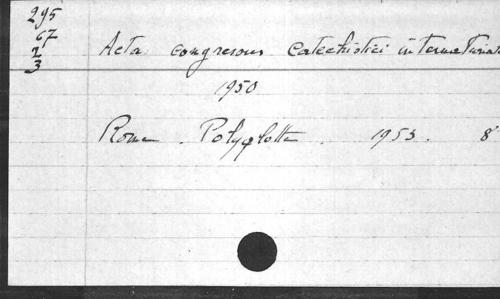 295
67
2
3
Acta congressus Catechistici internationa
1950
Roma. Polyglotta. 1953. 8°